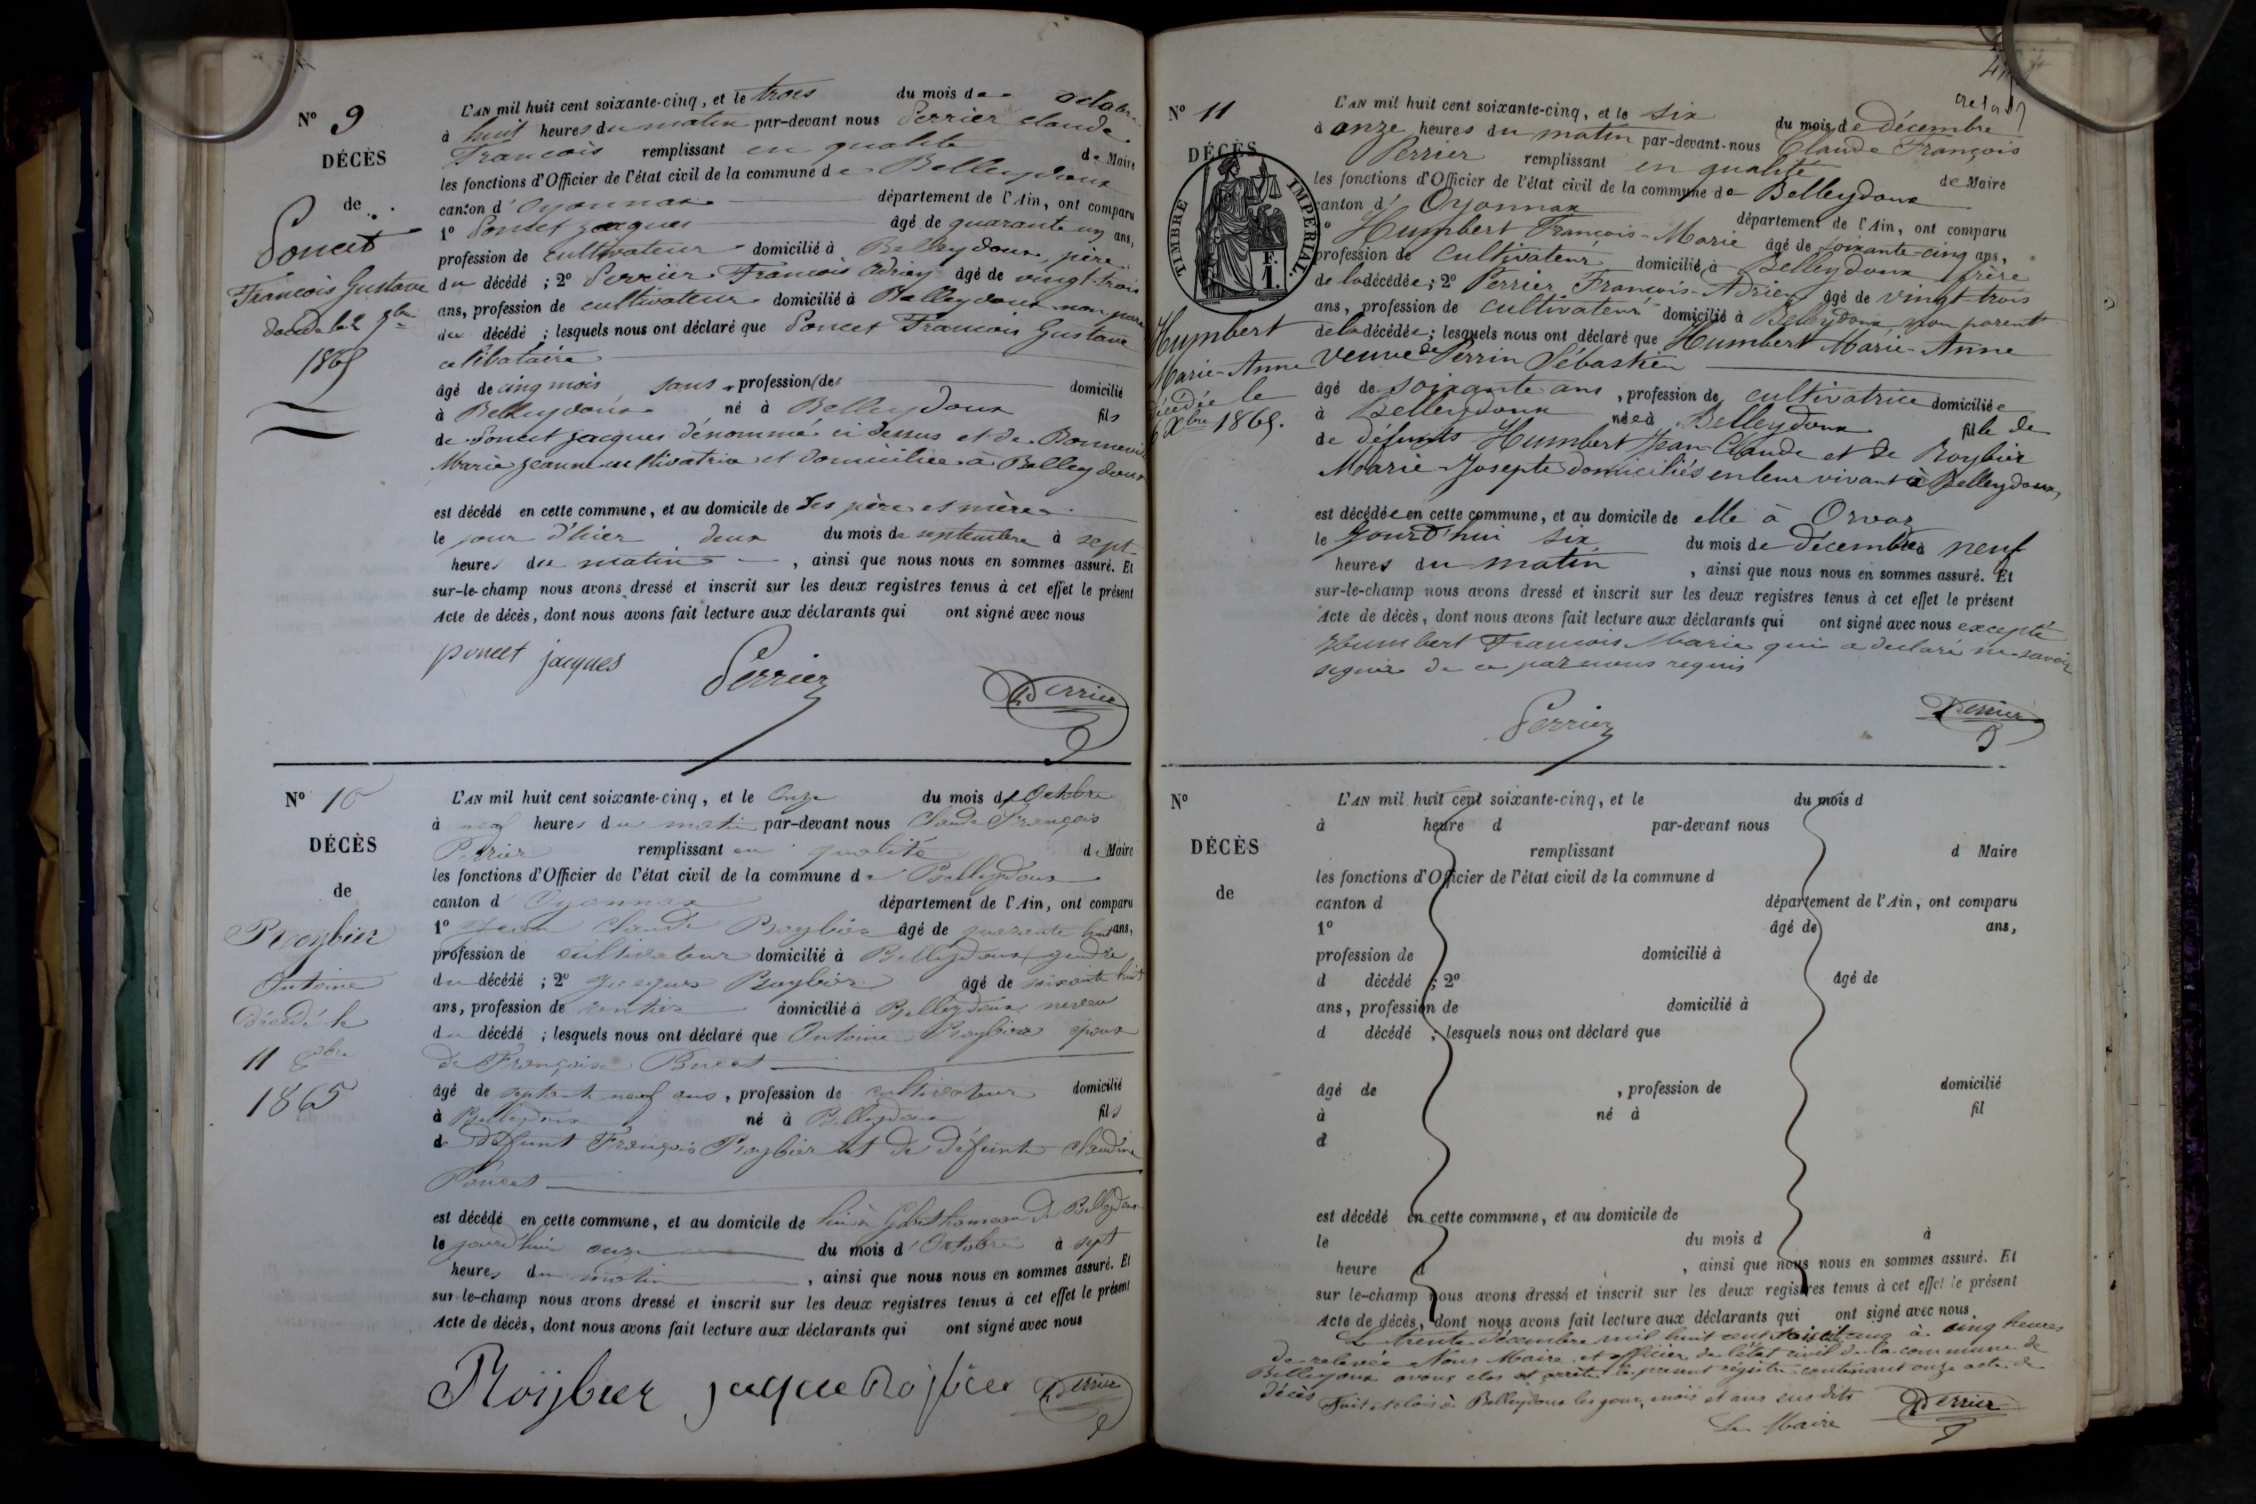 N° 9
DÉCÈS
de
Poncet
François Gustave
décédé le 2 7bre
1865
L'AN mil huit cent soixante-cinq, et le trois du mois de octobre
à huit heures du matin par-devant nous Perrier Claude
François remplissant en qualité de Maire
les fonctions d'Officier de l'état civil de la commune de Belleydoux
canton d'Oyonnax département de l'Ain, ont comparu
1° Poncet Jacques âgé de quarante un ans,
profession de cultivateur domicilié à Belleydoux, père
du décédé ; 2° Perrier François Adrien âgé de vingt-trois
ans, profession de cultivateur domicilié à Belleydoux non parent
du décédé ; lesquels nous ont déclaré que Poncet François Gustave
célibataire
âgé de cinq mois sans profession de domicilié
à Belleydoux né à Belleydoux fils
de Poncet Jacques dénommé ci dessus et de
Marie Jeanne cultivatrice et domiciliée à Belleydoux
est décédé en cette commune, et au domicile de ses père et mère
le jour d'hier deux du mois de septembre à sept
heures du matin, ainsi que nous nous en sommes assuré. Et
sur-le-champ nous avons dressé et inscrit sur les deux registres tenus à cet effet le présent
Acte de décès, dont nous avons fait lecture aux déclarants qui ont signé avec nous
poncet jacques Perrier Perrier
N° 10
DÉCÈS
de
Roybier
Antoine
Décédé le
11 8bre
1865
L'AN mil huit cent soixante-cinq, et le Onze du mois d'Octobre
à neuf heures du matin par-devant nous Claude François
Perrier remplissant en qualité de Maire
les fonctions d'Officier de l'état civil de la commune de Belleydoux
canton d'Oyonnax département de l'Ain, ont comparu
1° Jean Claude Roybier âgé de quarante huit ans,
profession de cultivateur domicilié à Belleydoux gendre
du décédé ; 2° Jacques Roybier âgé de soixante huit
ans, profession de rentier domicilié à Belleydoux neveu
du décédé ; lesquels nous ont déclaré que Antoine Roybier époux
de Françoise
âgé de septante neuf ans, profession de cultivateur domicilié
à Belleydoux né à Belleydoux fils
de défunt François Roybier et de défunte Claudine
Poncet
est décédé en cette commune, et au domicile de lui à de Belleydoux
le jourd'hui onze du mois d'Octobre à sept
heures du matin, ainsi que nous nous en sommes assuré. Et
sur le-champ nous avons dressé et inscrit sur les deux registres tenus à cet effet le présent
Acte de décès, dont nous avons fait lecture aux déclarants qui ont signé avec nous
Roijbier jaque Rojbier Perrier
N° 11
DÉCÈS
TIMBRE IMPÉRIAL
F.
1.
Humbert
Marie-Anne
décédée le
6 Xbre 1865.
L'AN mil huit cent soixante-cinq, et le six du mois de décembre
à onze heures du matin par-devant-nous Claude François
Perrier remplissant en qualité de Maire
les fonctions d'Officier de l'état civil de la commune de Belleydoux
canton d'Oyonnax département de l'Ain, ont comparu
1° Humbert François-Marie âgé de soixante-cinq ans,
profession de cultivateur domicilié à Belleydoux frère
de la décédée ; 2° Perrier, François-Adrien âgé de vingt-trois
ans, profession de cultivateur domicilié à Belleydoux, non parent
de la décédée ; lesquels nous ont déclaré que Humbert Marie-Anne
veuve de Perrin Sébastien
âgé de soixante ans, profession de cultivatrice domiciliée
à Belleydoux née à Belleydoux fille de
de défunts Humbert Jean-Claude et de Roybier
Marie-Josepte domiciliés en leur vivant à Belleydoux,
est décédée en cette commune, et au domicile de elle à Orvaz
le jourd'hui six du mois de décembre à neuf
heures du matin, ainsi que nous nous en sommes assuré. Et
sur-le-champ nous avons dressé et inscrit sur les deux registres tenus à cet effet le présent
Acte de décès, dont nous avons fait lecture aux déclarants qui ont signé avec nous excepté
Humbert François Marie qui a déclaré ne savoir
signer de ce par nous requis
Perrier Perrier
N°
DÉCÈS
de
L'AN mil huit cent soixante-cinq, et le du mois d
à heure d par-devant nous
remplissant d Maire
les fonctions d'Officier de l'état civil de la commune d
canton d département de l'Ain, ont comparu
1° âgé de ans,
profession de domicilié à
d décédé ; 2° âgé de
ans, profession de domicilié à
d décédé ; lesquels nous ont déclaré que
âgé de , profession de domicilié
à né à fil
d
est décédé en cette commune, et au domicile de
le du mois d à
heure d , ainsi que nous nous en sommes assuré. Et
sur le-champ nous avons dressé et inscrit sur les deux registres tenus à cet effet le présent
Acte de décès, dont nous avons fait lecture aux déclarants qui ont signé avec nous
Le trente décembre mil huit cent soixante cinq à cinq heures
de relevée Nous Maire et officier de l'état civil de la commune de
Belleydoux avons clos et arrêté le présent registre contenant onze acte de
décès Fait et clos à Belleydoux les jour, mois et ans sus dits
Le Maire Perrier